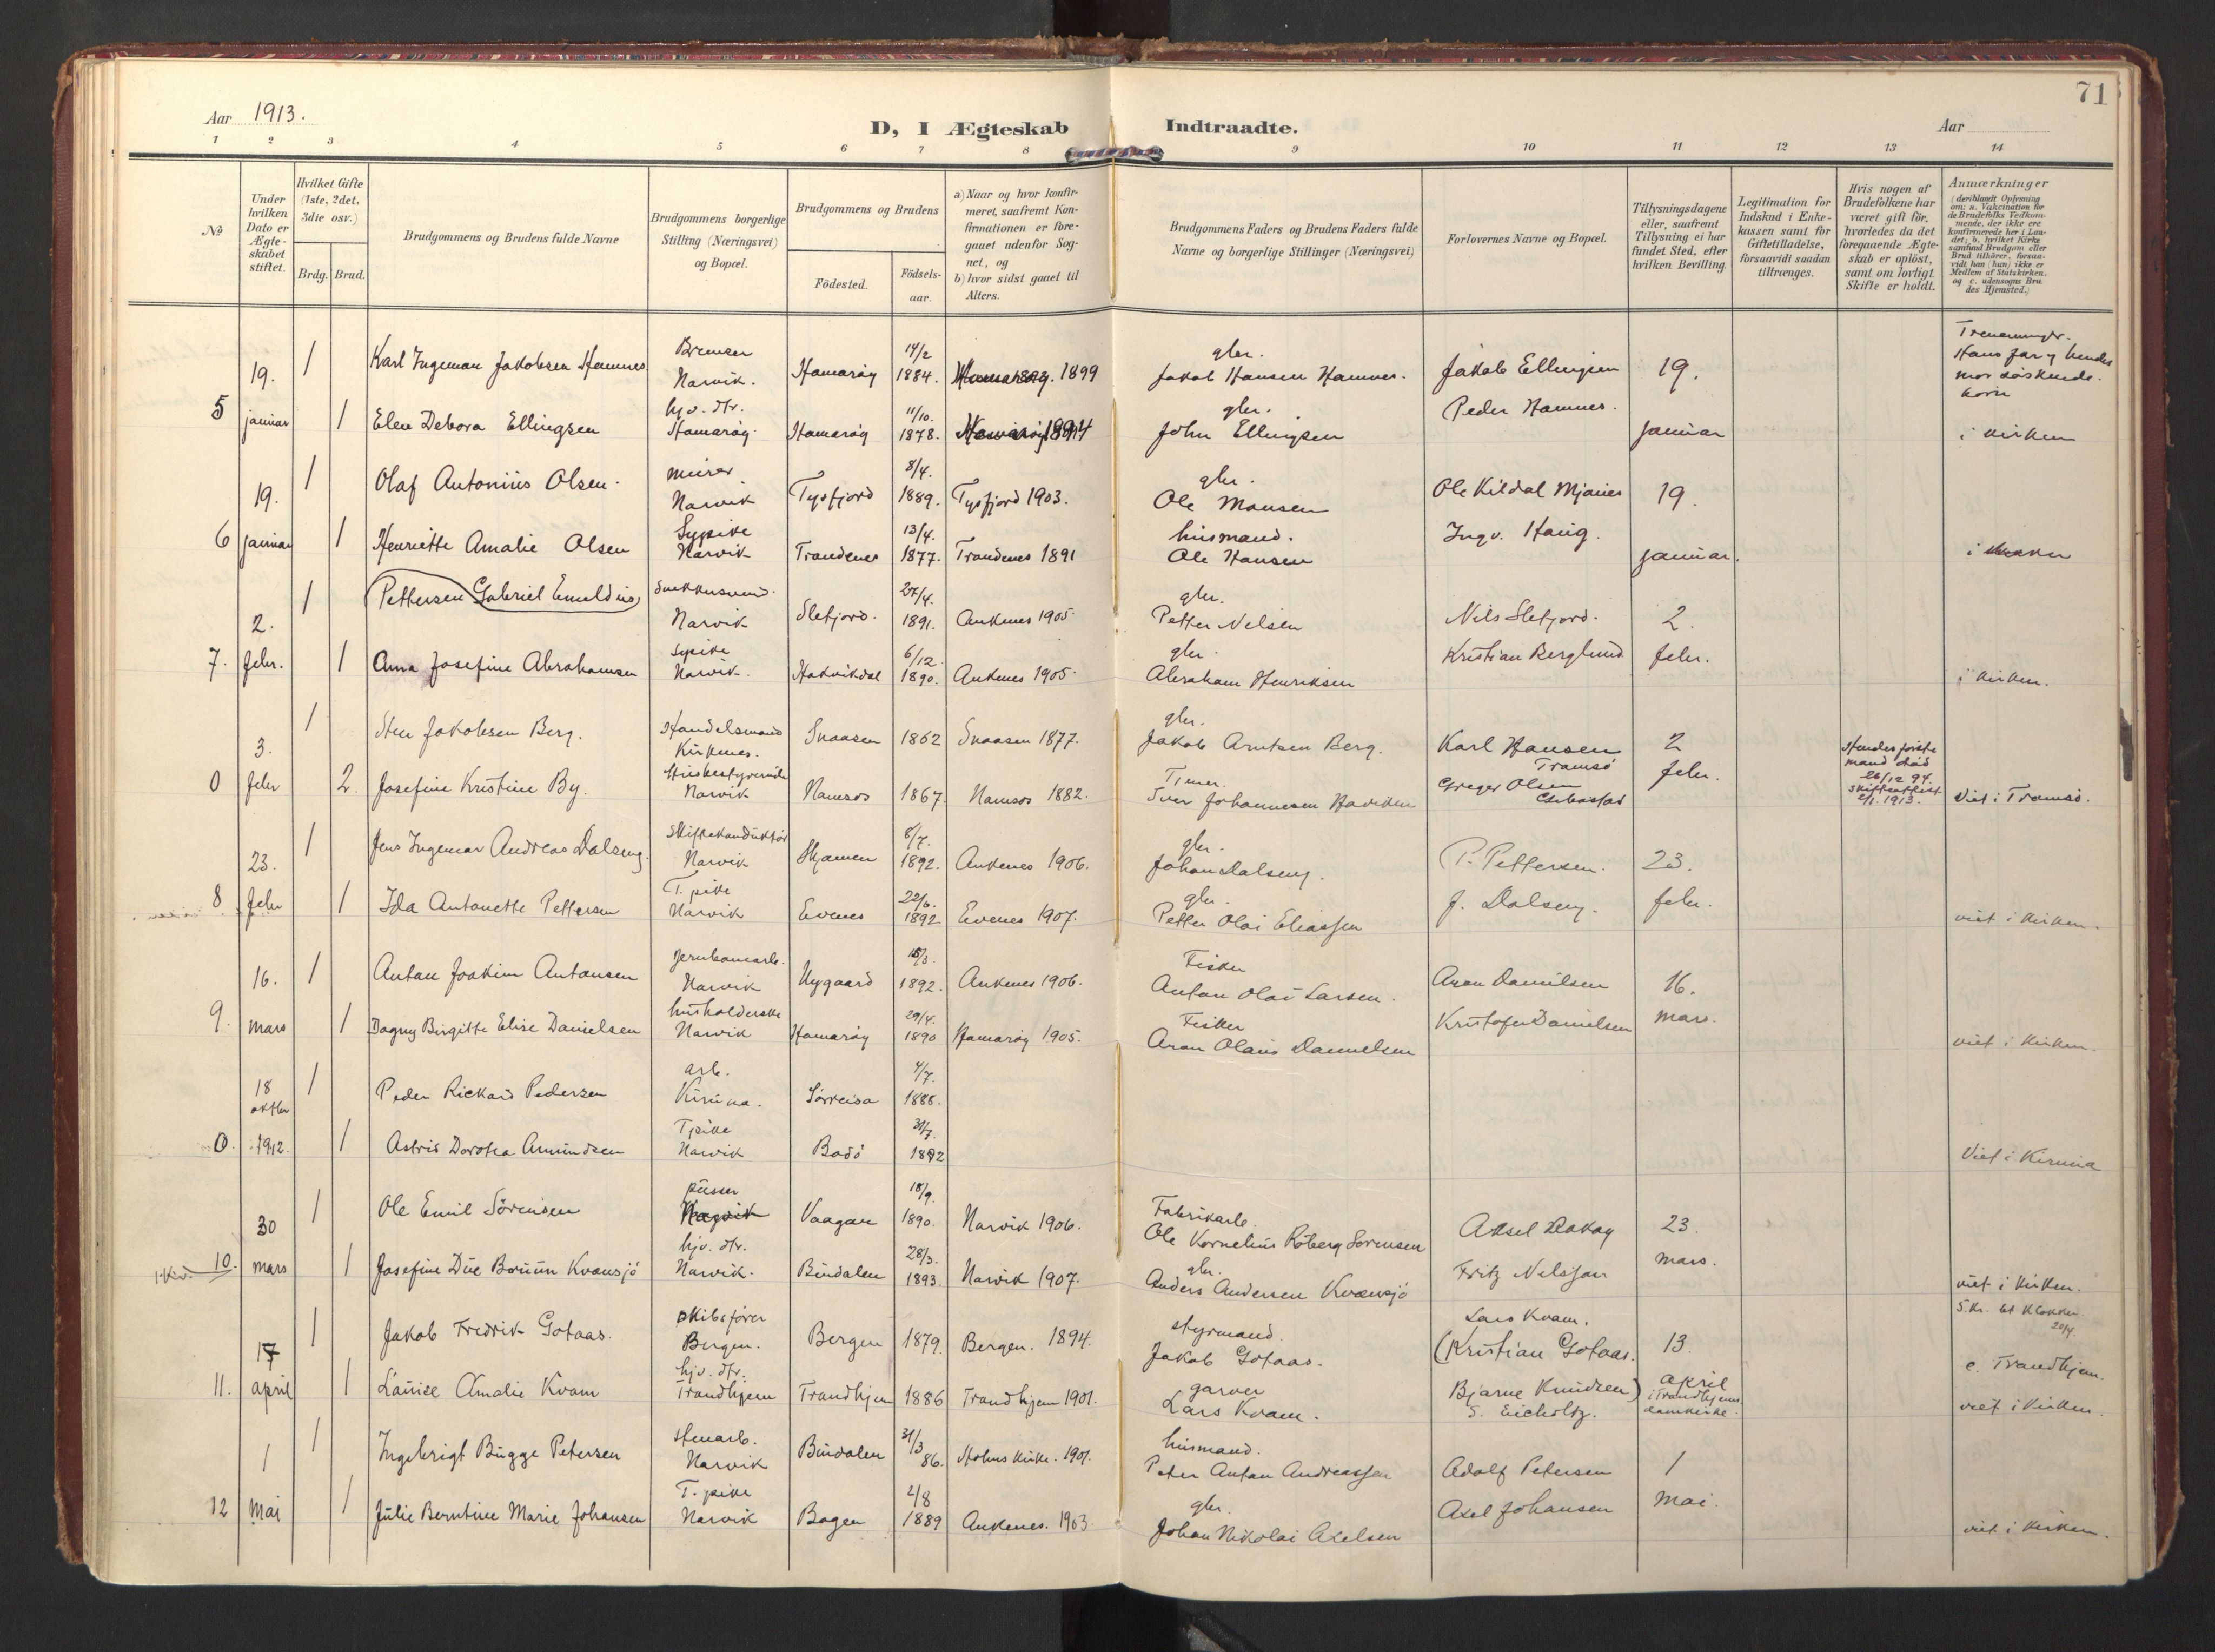 71
Aar 1913.
D, I Ægteskab Indtraadte.
Aar
1 2 3 4 5 6 7 8 9 10 11 12 13 14
№
Under hvilken Dato er Ægteskabet stiftet.
Hvilket Gifte (1ste, 2det, 3die osv.)
Brdg. Brud.
Brudgommens og Brudens fulde Navne
Brudgommens borgerlige Stilling (Næringsvei) og Bopæl.
Brudgommens og Brudens
Födested.
Födsels-aar.
a) Naar og hvor konfirmeret, saafremt Konfirmationen er foregaaet udenfor Sognet, og
b) hvor sidst gaaet til Alters.
Brudgommens Faders og Brudens Faders fulde Navne og borgerlige Stillinger (Næringsvei)
Forlovernes Navne og Bopæl.
Tillysningsdagene eller, saafremt Tillysning ei har fundet Sted, efter hvilken Bevilling.
Legitimation for Indskud i Enkekassen samt for Giftetilladelse, forsaavidt saadan tiltrænges.
Hvis nogen af Brudefolkene har været gift för, hvorledes da det foregaaende Ægteskab er oplöst, samt om lovligt Skifte er holdt.
Anmærkninger
(deriblandt Oplysning om: a. Vakcination for de Brudefolks Vedkommende, der ikke ere konfirmerede her i Landet; b. hvilket Kirkesamfund Brudgom eller Brud tilhörer, forsaavidt han (hun) ikke er Medlem af Statskirken. og c. udensogns Brudes Hjemsted.)
19. 1 Karl Ingeman Jakobsen Hamnes Bremser Narvik. Hamarøy 14/2 1884. 1899 gbr. Jakob Hansen Hamnes. Jakob Ellingsen 19. Hans far og hendes mor søskende born
5 januar 1 Elen Debora Ellingsen hjv. dtr. Hamarøy. Hamarøy 11/10. 1878. 1894 gbr. John Ellingsen Peder Hamnes. januar i kirken
19. 1 Olaf Antonius Olsen. murer Narvik Tysfjord 8/4. 1889. Tysfjord 1903. gbr. Ole Monsen Ole Kildal Mjanes 19.
6 januar 1 Henriette Amalie Olsen Sypike Narvik Trondenes 13/4. 1877. Trondenes 1891 husmand. Ole Hansen Ingv. Haug. januar. i
2. 1 Pettersen Gabriel Emeldius, Narvik Slefjord. 27/4. 1891. Ankenes 1905. gbr. Petter Nelsen Nils Slefjord. 2.
7. febr. 1 Anna Josefine Abrahamsen sypike Narvik. Hakvikdal 6/12. 1890. Ankenes 1905. gbr. Abraham Henriksen Kristian Berglund febr. i kirken.
3. 1 Sten Jakobsen Berg. Handelsmand Kirkenes. Snaasen 1862 Snaasen 1877. gbr. Jakob Arntsen Berg. Karl Hansen Tromsö 2 Hendes første mand död 26/12 94. skifteattest 2/1. 1913.
0 febr 2. Josefine Kristine By. Husbestyrerinde Narvik Namsos 1867 Namsos 1882. Iver Johannesen Greger Olsen febr. Viet i Tromsö.
23. 1 Jens Ingemar Andreas Dalseng. Skiftekonduktör Narvik Skjomen 8/7. 1892. Ankenes 1906. gbr. Johan Dalseng. P. Pettersen. 23.
8 febr 1 Ida Antonette Pettersen T. pike Narvik Evenes 22/6. 1892 Evenes 1907. gbr. Petter Olai Eliassen J. Dalseng. febr. viet i kirken.
16. 1 Anton Joakim Antonsen Jernbanearb. Narvik Nygaard 1892. Ankenes 1906. Fisker Anton Olai Larsen. Aron Danielsen 16.
9. mars 1 Dagny Birgitte Elise Danielsen husholderske Narvik Hamarøy 29/4. 1890 Hamarøy 1905. Fisker Aron Olaus Danielsen Kristofer Danielsen mars. viet i kirken.
18 oktbr 1 Peder Rickard Pedersen arb. Kiruna. Sørreisa 4/7. 1888.
0. 1912. 1 Astrid Dorotea Amundsen T pike Narvik Bodö 31/7. 1892 Viet i Kiruna
30 1 Ole Emil Sörensen pusser Narvik Vaagan 18/9. 1890. Narvik 1906. Fabrikarb. Ole Kornelius Röberg Sorensen Aksel 23.
10. mars 1 Josefine Due Bruun Kvænsjö hjv. dtr. Narvik. Bindalen 28/3. 1893. Narvik 1907. gbr. Anders Andersen Kvænsjö Fritz Nelsson mars. viet i kirken.
17 1 Jakob Fredrik Gotaas. skibsförer Bergen. Bergen 1879. Bergen. 1894. styrmand. Jakob Gotaas. Lars Kvam. (Kristian Gotaas. 13.
11. april 1 Louise Amalie Kvam hjv. dtr. Trondhjem Trondhjem 1886 Trondhjem 1901. garver Lars Kvam. Bjarne Knudzen) S. Eicholtz. april i Trondhjems domkirke. c. Trondhjem. viet i kirken.
1 1 Ingebrigt Bugge Petersen stenarb. Narvik Bindalen 31/3 86. Holms kirke. 1901. husmand. Peter Antan Andreassen Adolf Petersen 1
12 mai 1 Julie Berntine Marie Johansen T. pike Narvik Bogen 2/8 1889 Ankenes. 1903. gbr. Johan Nikolai Axelsen Axel Johansen mai. viet i kirken.